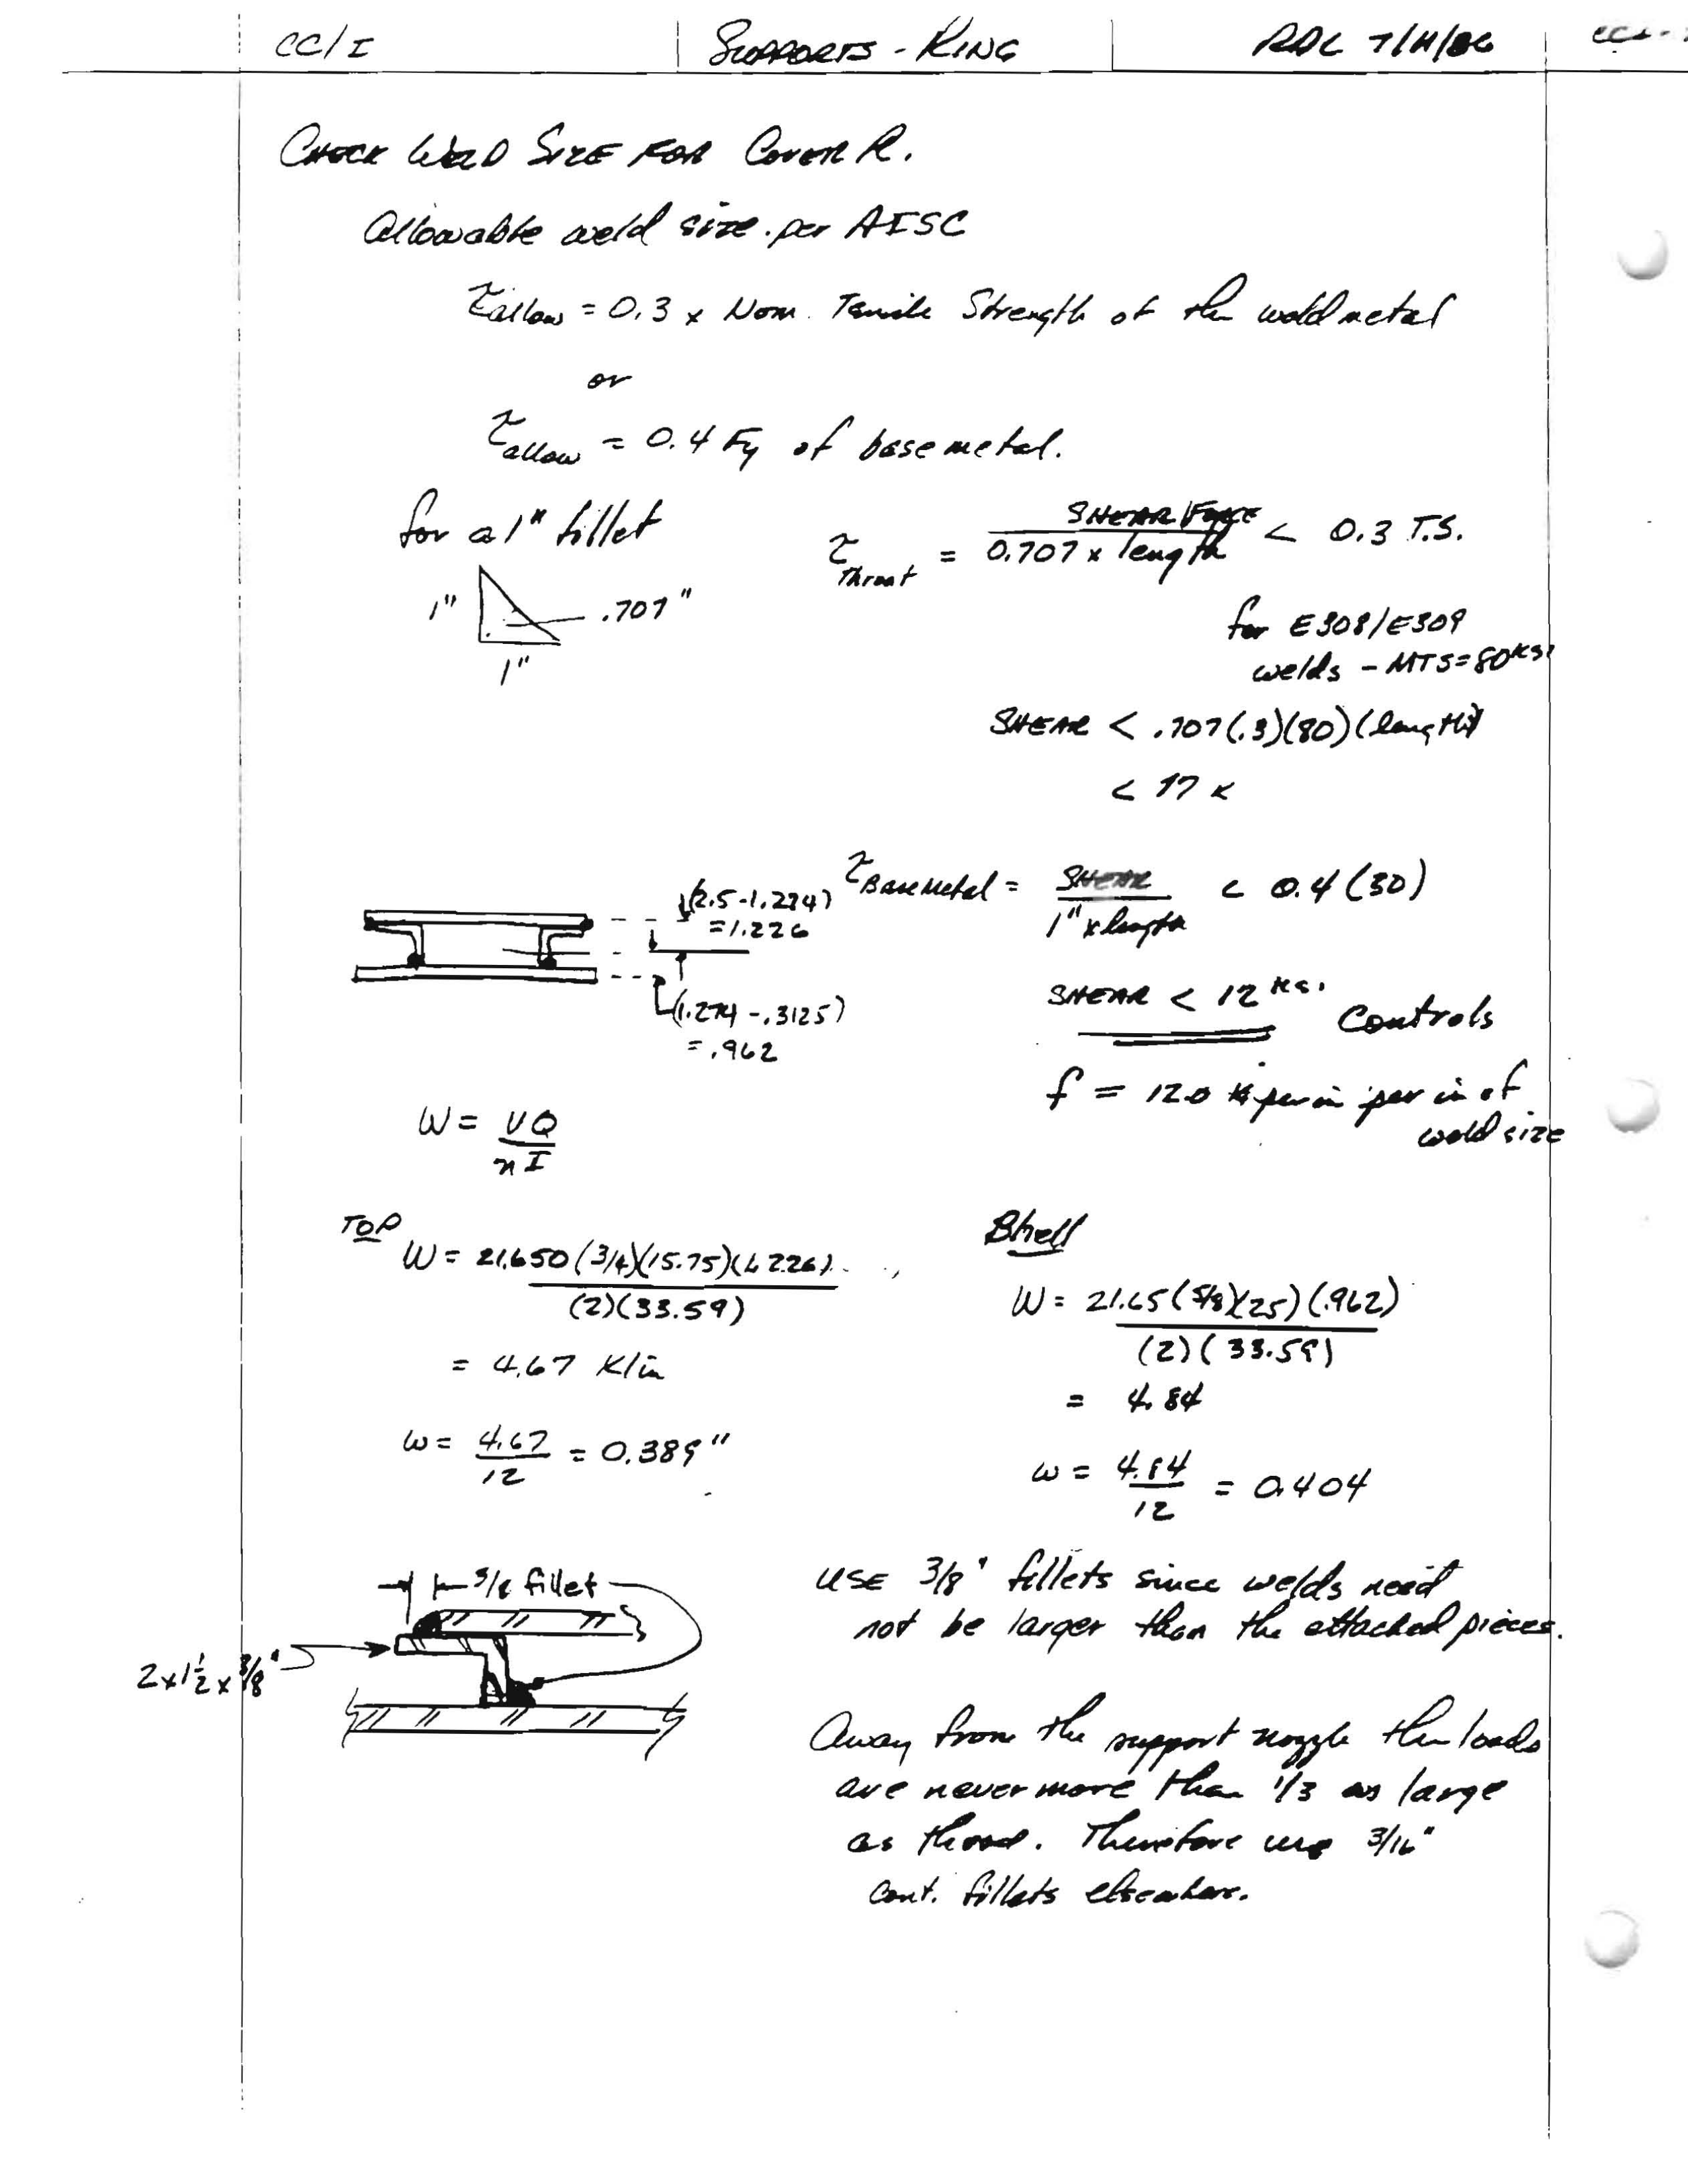 CC/I
SUPPORTS - RING
RDC 7/11/86
CHECK WELD SIZE FOR COVER PL.
Allowable weld size per AISC
τallow = 0.3 x Nom. Tensile Strength of the weld metal
or
τallow = 0.4 Fy of base metal.
for a 1" fillet
1"
.707"
1"
τThroat = SHEAR FORCE / 0.707 x length < 0.3 T.S.
for E308/E309
welds - MTS=80 ksi
SHEAR < .707(.3)(80)(length)
< 17 K
τBase Metal = SHEAR / 1" x length < 0.4 (30)
(2.5-1.274)
=1.226
(1.274-.3125)
= .962
SHEAR < 12 ksi Controls
f = 12.0 k per in per in of
weld size
W = VQ / nI
TOP
W = 21.650 (3/4)(15.75)(1.226) / (2)(33.59)
= 4.67 K/in
w = 4.67 / 12 = 0.389"
Shell
W = 21.65 (5/8)(25)(.962) / (2)(33.59)
= 4.84
w = 4.84 / 12 = 0.404
3/8 fillet
2 x 1 1/2 x 3/8"
USE 3/8" fillets since welds need
not be larger than the attached pieces.
Away from the support nozzle the loads
are never more than 1/3 as large
as these. Therefore use 3/16"
cont. fillets elsewhere.